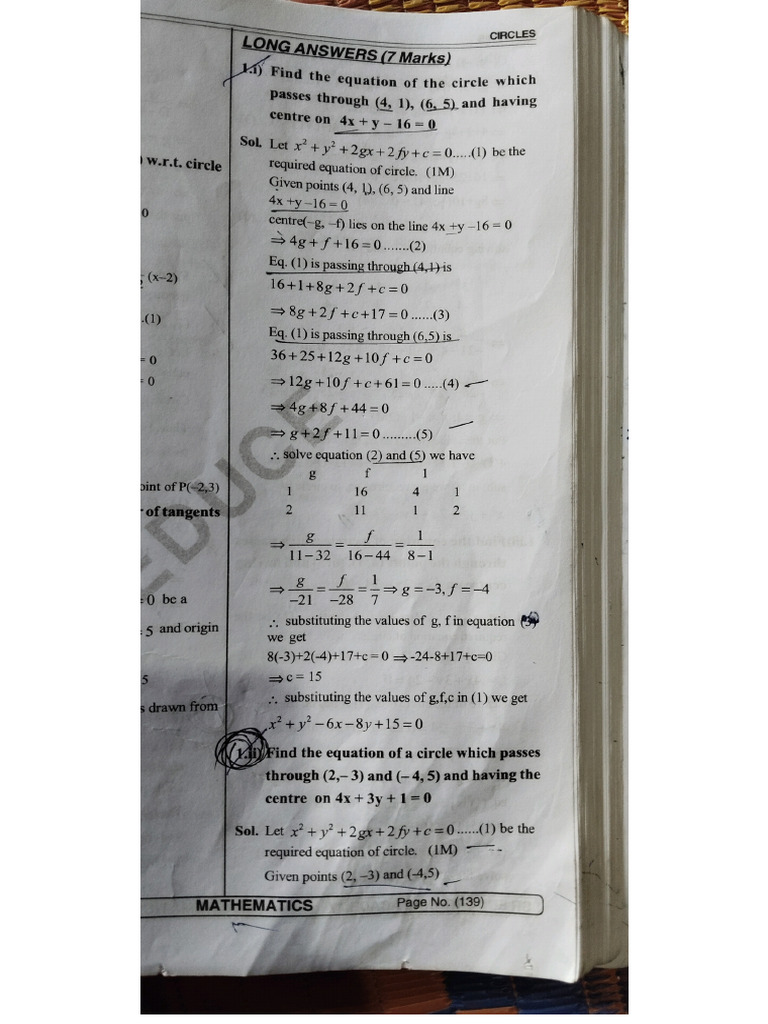 CIRCLES
LONG ANSWERS (7 Marks)
1.i) Find the equation of the circle which
passes through (4, 1), (6, 5) and having
centre on 4x + y – 16 = 0
Sol. Let x² + y² + 2gx + 2fy + c = 0.....(1) be the
required equation of circle. (1M)
Given points (4, 1), (6, 5) and line
4x +y –16 = 0
centre(–g, –f) lies on the line 4x +y –16 = 0
⇒ 4g + f + 16 = 0 .......(2)
Eq. (1) is passing through (4,1) is
16+1+8g+2f+c=0
⇒ 8g+2f+c+17=0 ......(3)
Eq. (1) is passing through (6,5) is
36+25+12g+10f+c=0
⇒12g+10f+c+61=0 .....(4)
⇒ 4g+8f+44=0
⇒ g+2f+11=0 .........(5)
∴ solve equation (2) and (5) we have
g f 1
1 16 4 1
2 11 1 2
⇒ g/(11–32) = f/(16–44) = 1/(8–1)
⇒ g/–21 = f/–28 = 1/7 ⇒ g = –3, f = –4
∴ substituting the values of g, f in equation (3)
we get
8(-3)+2(-4)+17+c = 0 ⇒ -24-8+17+c=0
⇒ c = 15
∴ substituting the values of g,f,c in (1) we get
x² + y² – 6x – 8y + 15 = 0
1.ii) Find the equation of a circle which passes
through (2,– 3) and (– 4, 5) and having the
centre on 4x + 3y + 1 = 0
Sol. Let x² + y² + 2gx + 2fy + c = 0......(1) be the
required equation of circle. (1M)
Given points (2, –3) and (-4,5)
MATHEMATICS Page No. (139)
) w.r.t. circle
0
(x–2)
.(1)
= 0
= 0
oint of P(–2,3)
of tangents
=0 be a
= 5 and origin
5
s drawn from
EDUCE